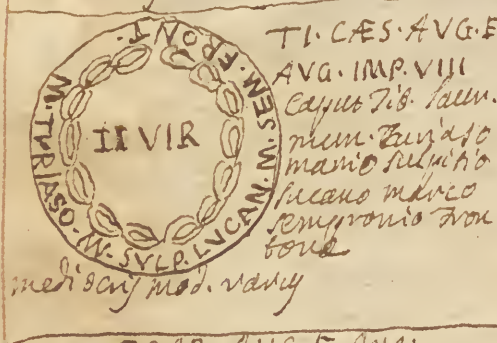 M. TVRIASO. M. SVLP. LVCAN. M. SEM. FRONT.
II VIR
TI. CÆS. AVG. F
AVG. IMP. VIII
caput Tib. laur.
mun. Turiaso
manio sulpitio
lucano marco
sempronio fron
tone
mediocris mod. varij